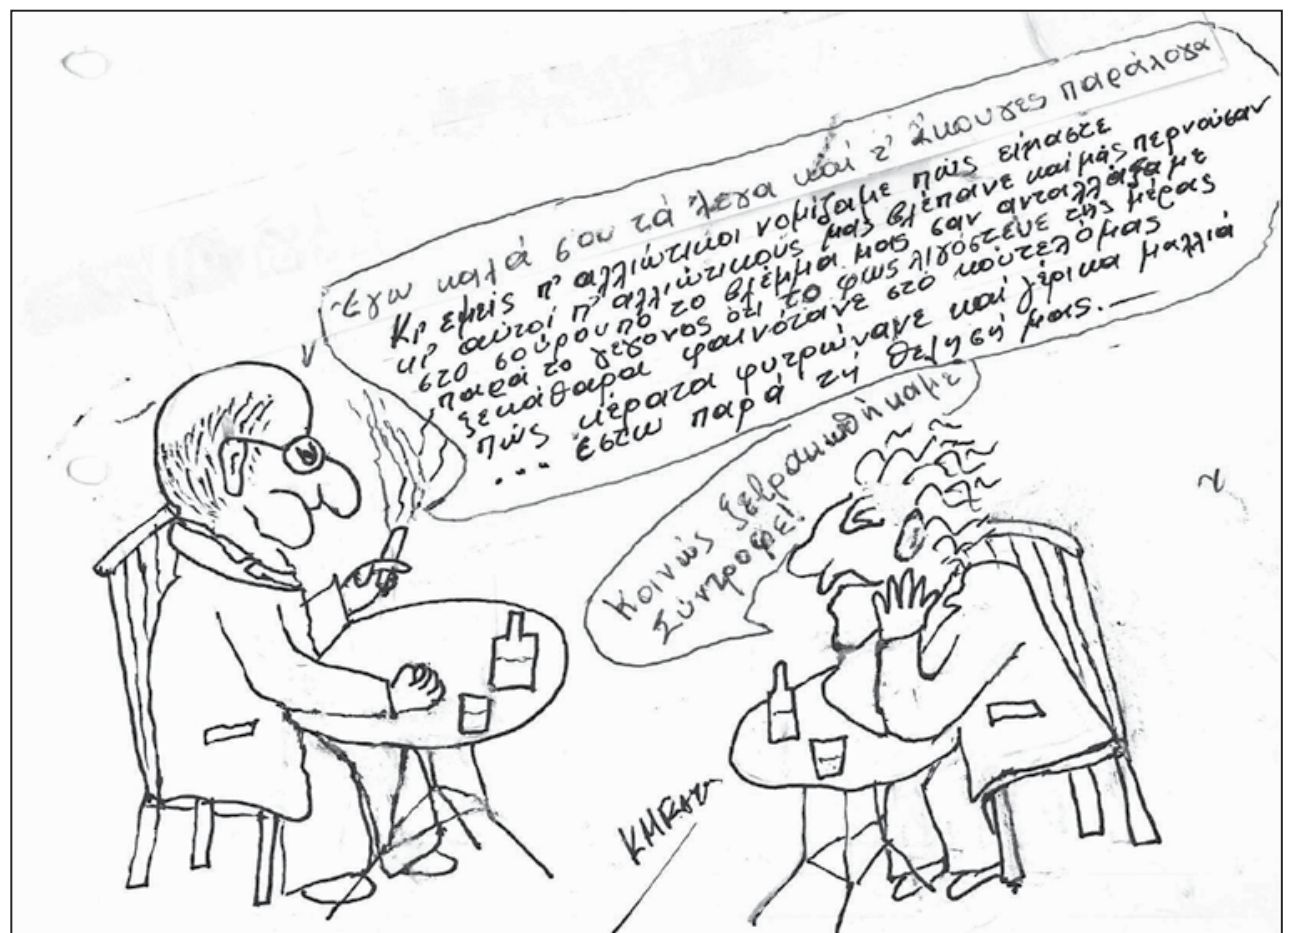 Εγώ καλά σου τά 'λεγα καί τ' άκουγες παράλογα
Κι' εμείς π' αλλιώτικοι νομίζαμε πώς είμαστε
κι' αυτοί π' αλλιώτικους μας βλέπανε καί μάς περνούσαν
στο σούρουπο το βλέμμα μας σαν ανταλλάξαμε
παρά το γεγονος ότι το φως λιγόστευε της μέρας
ξεκάθαρα φαινότανε στο κούτελό μας
πώς κέρατα φυτρώνανε καί γέρικα μαλλιά
... έστω παρά τή θέλησή μας.—
Κοινώς ξεβρακωθήκαμε
Σύντροφε!